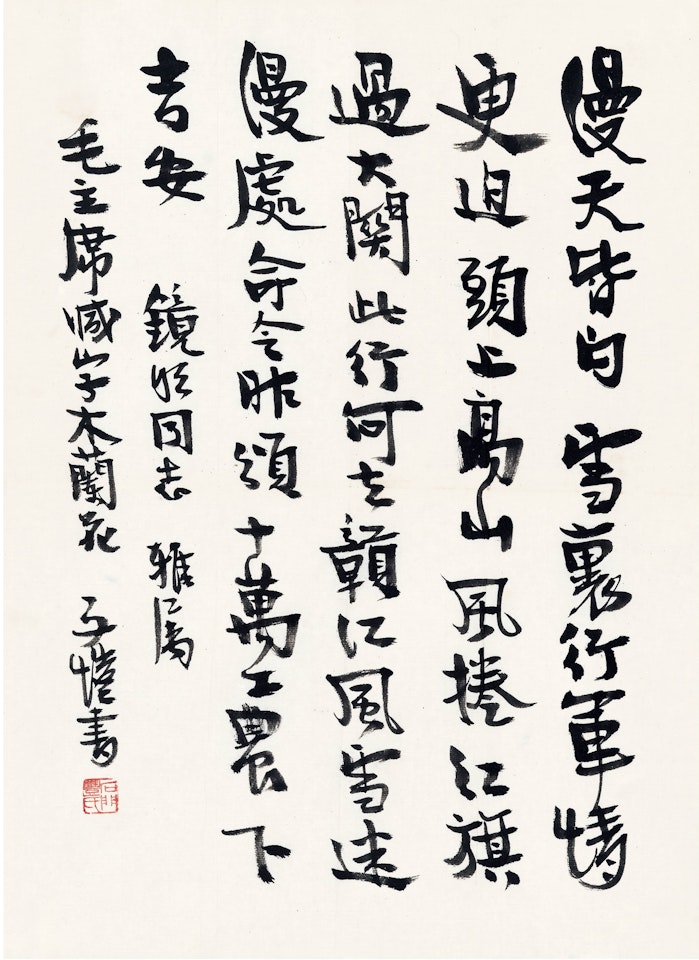 漫天皆白雪裏行軍情
更迫頭上高山風捲紅旗
過大關此行何去贛江風雪迷
漫處命令昨頒十萬工農下
吉安 鏡同志 雅属
毛主席減字木蘭花 子愷書
石門豐氏